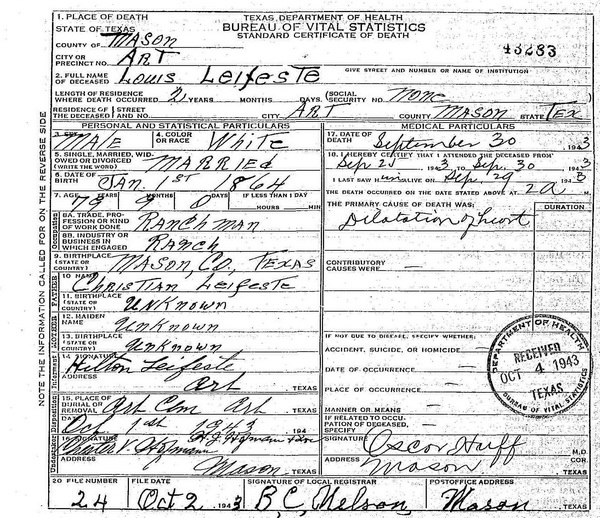 1. PLACE OF DEATH
STATE OF TEXAS
TEXAS DEPARTMENT OF HEALTH
BUREAU OF VITAL STATISTICS
STANDARD CERTIFICATE OF DEATH
COUNTY OF MASON
CITY OR PRECINCT NO. ART
43283
2. FULL NAME OF DECEASED Louis Leifeste
GIVE STREET AND NUMBER OR NAME OF INSTITUTION
LENGTH OF RESIDENCE WHERE DEATH OCCURRED 2 YEARS MONTHS DAYS. (SOCIAL SECURITY NO. None
RESIDENCE OF THE DECEASED STREET AND NO. CITY ART COUNTY MASON STATE TEX
PERSONAL AND STATISTICAL PARTICULARS
3. SEX MALE 4. COLOR OR RACE White
5. SINGLE, MARRIED, WIDOWED OR DIVORCED (WRITE THE WORD) MARRIED
6. DATE OF BIRTH JAN. 1ST 1864
7. AGE YEARS MONTHS DAYS IF LESS THAN 1 DAY
79 9 0 HOURS MIN
8A. TRADE, PROFESSION OR KIND OF WORK DONE RANCHMAN
8B. INDUSTRY OR BUSINESS IN WHICH ENGAGED RANCH
9. BIRTHPLACE (STATE OR COUNTRY) MASON, CO., TEXAS
FATHER
10. NAME CHRISTIAN LEIFESTE
11. BIRTHPLACE (STATE OR COUNTRY) UNKNOWN
MOTHER
12. MAIDEN NAME Unknown
13. BIRTHPLACE (STATE OR COUNTRY) Unknown
Informant
14. SIGNATURE Hilton Leifeste
ADDRESS Art TEXAS
Disposition
15. PLACE OF BURIAL OR REMOVAL Art Cem Art TEXAS
Oct 1st 1943 194
Undertaker
16. SIGNATURE H. J. Hofmann & Son
Charles V. Hofmann
ADDRESS Mason, TEXAS
MEDICAL PARTICULARS
17. DATE OF DEATH September 30 1943
18. I HEREBY CERTIFY THAT I ATTENDED THE DECEASED FROM
Sep. 25 1943 Sep. 30 1943
I LAST SAW H im ALIVE ON Sep. 29 1943
THE DEATH OCCURRED ON THE DATE STATED ABOVE AT 2 a M.
THE PRIMARY CAUSE OF DEATH WAS: DURATION
Dilatation of heart
CONTRIBUTORY CAUSES WERE —
IF NOT DUE TO DISEASE, SPECIFY WHETHER:
ACCIDENT, SUICIDE, OR HOMICIDE —
DATE OF OCCURRENCE —
PLACE OF OCCURRENCE —
MANNER OR MEANS
IF RELATED TO OCCUPATION OF DECEASED, SPECIFY
SIGNATURE Oscar Huff M.D.
ADDRESS Mason, TEXAS
DEPARTMENT OF HEALTH
RECEIVED
OCT 4 1943
TEXAS
BUREAU OF VITAL STATISTICS
20 FILE NUMBER FILE DATE SIGNATURE OF LOCAL REGISTRAR POSTOFFICE ADDRESS
24 Oct 2 1943 B. C. Nelson, Mason TEXAS
NOTE THE INFORMATION CALLED FOR ON THE REVERSE SIDE